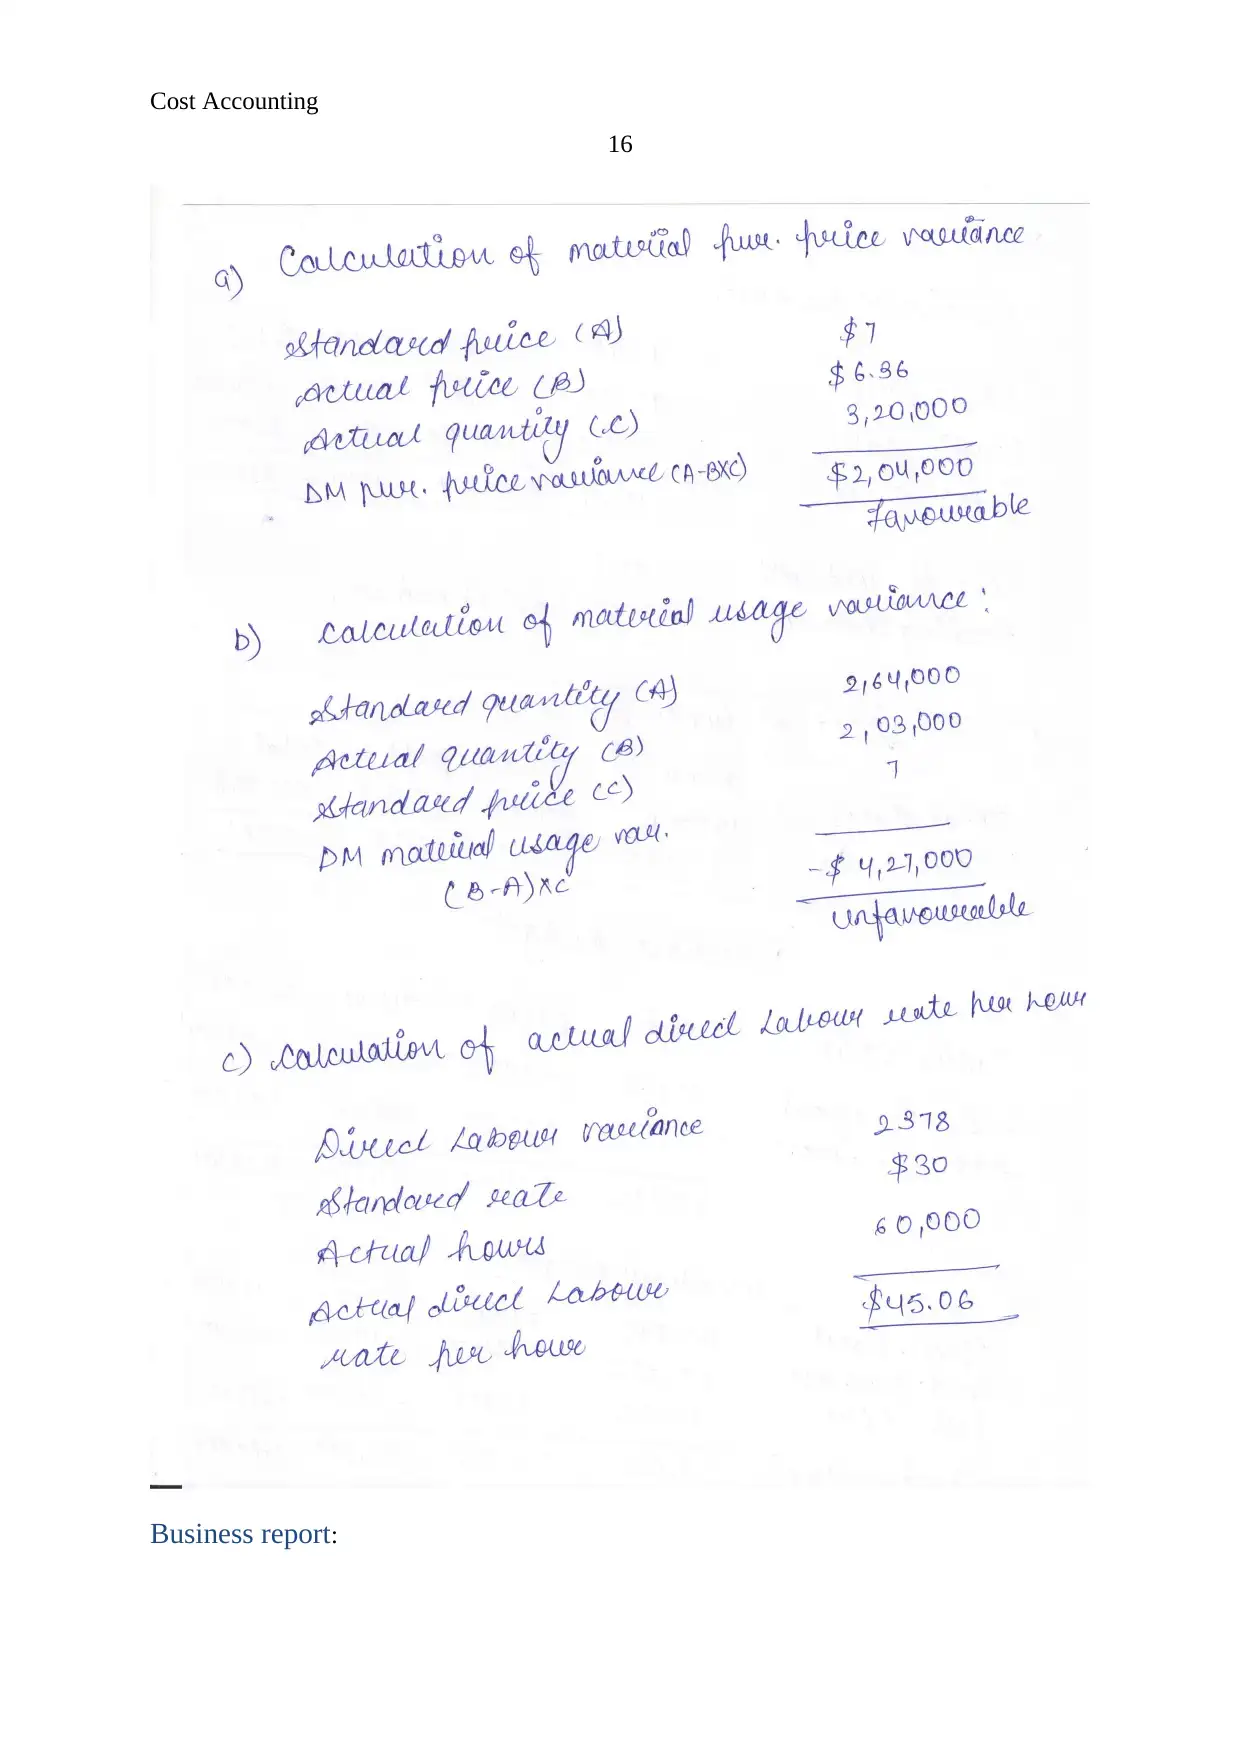 Cost Accounting
16
a) Calculation of material pur. price variance
Standard price (A) $7
Actual price (B) $6.36
Actual quantity (C) 3,20,000
DM pur. price variance (A-BXC) $2,04,000
Favourable
b) Calculation of material usage variance :
Standard quantity (A) 2,64,000
Actual quantity (B) 2,03,000
Standard price (C) 7
DM material usage var.
(B-A)XC -$ 4,27,000
Unfavourable
c) Calculation of actual direct Labour rate per hour
Direct Labour variance 2378
Standard rate $30
Actual hours 60,000
Actual direct Labour $45.06
rate per hour
Business report: